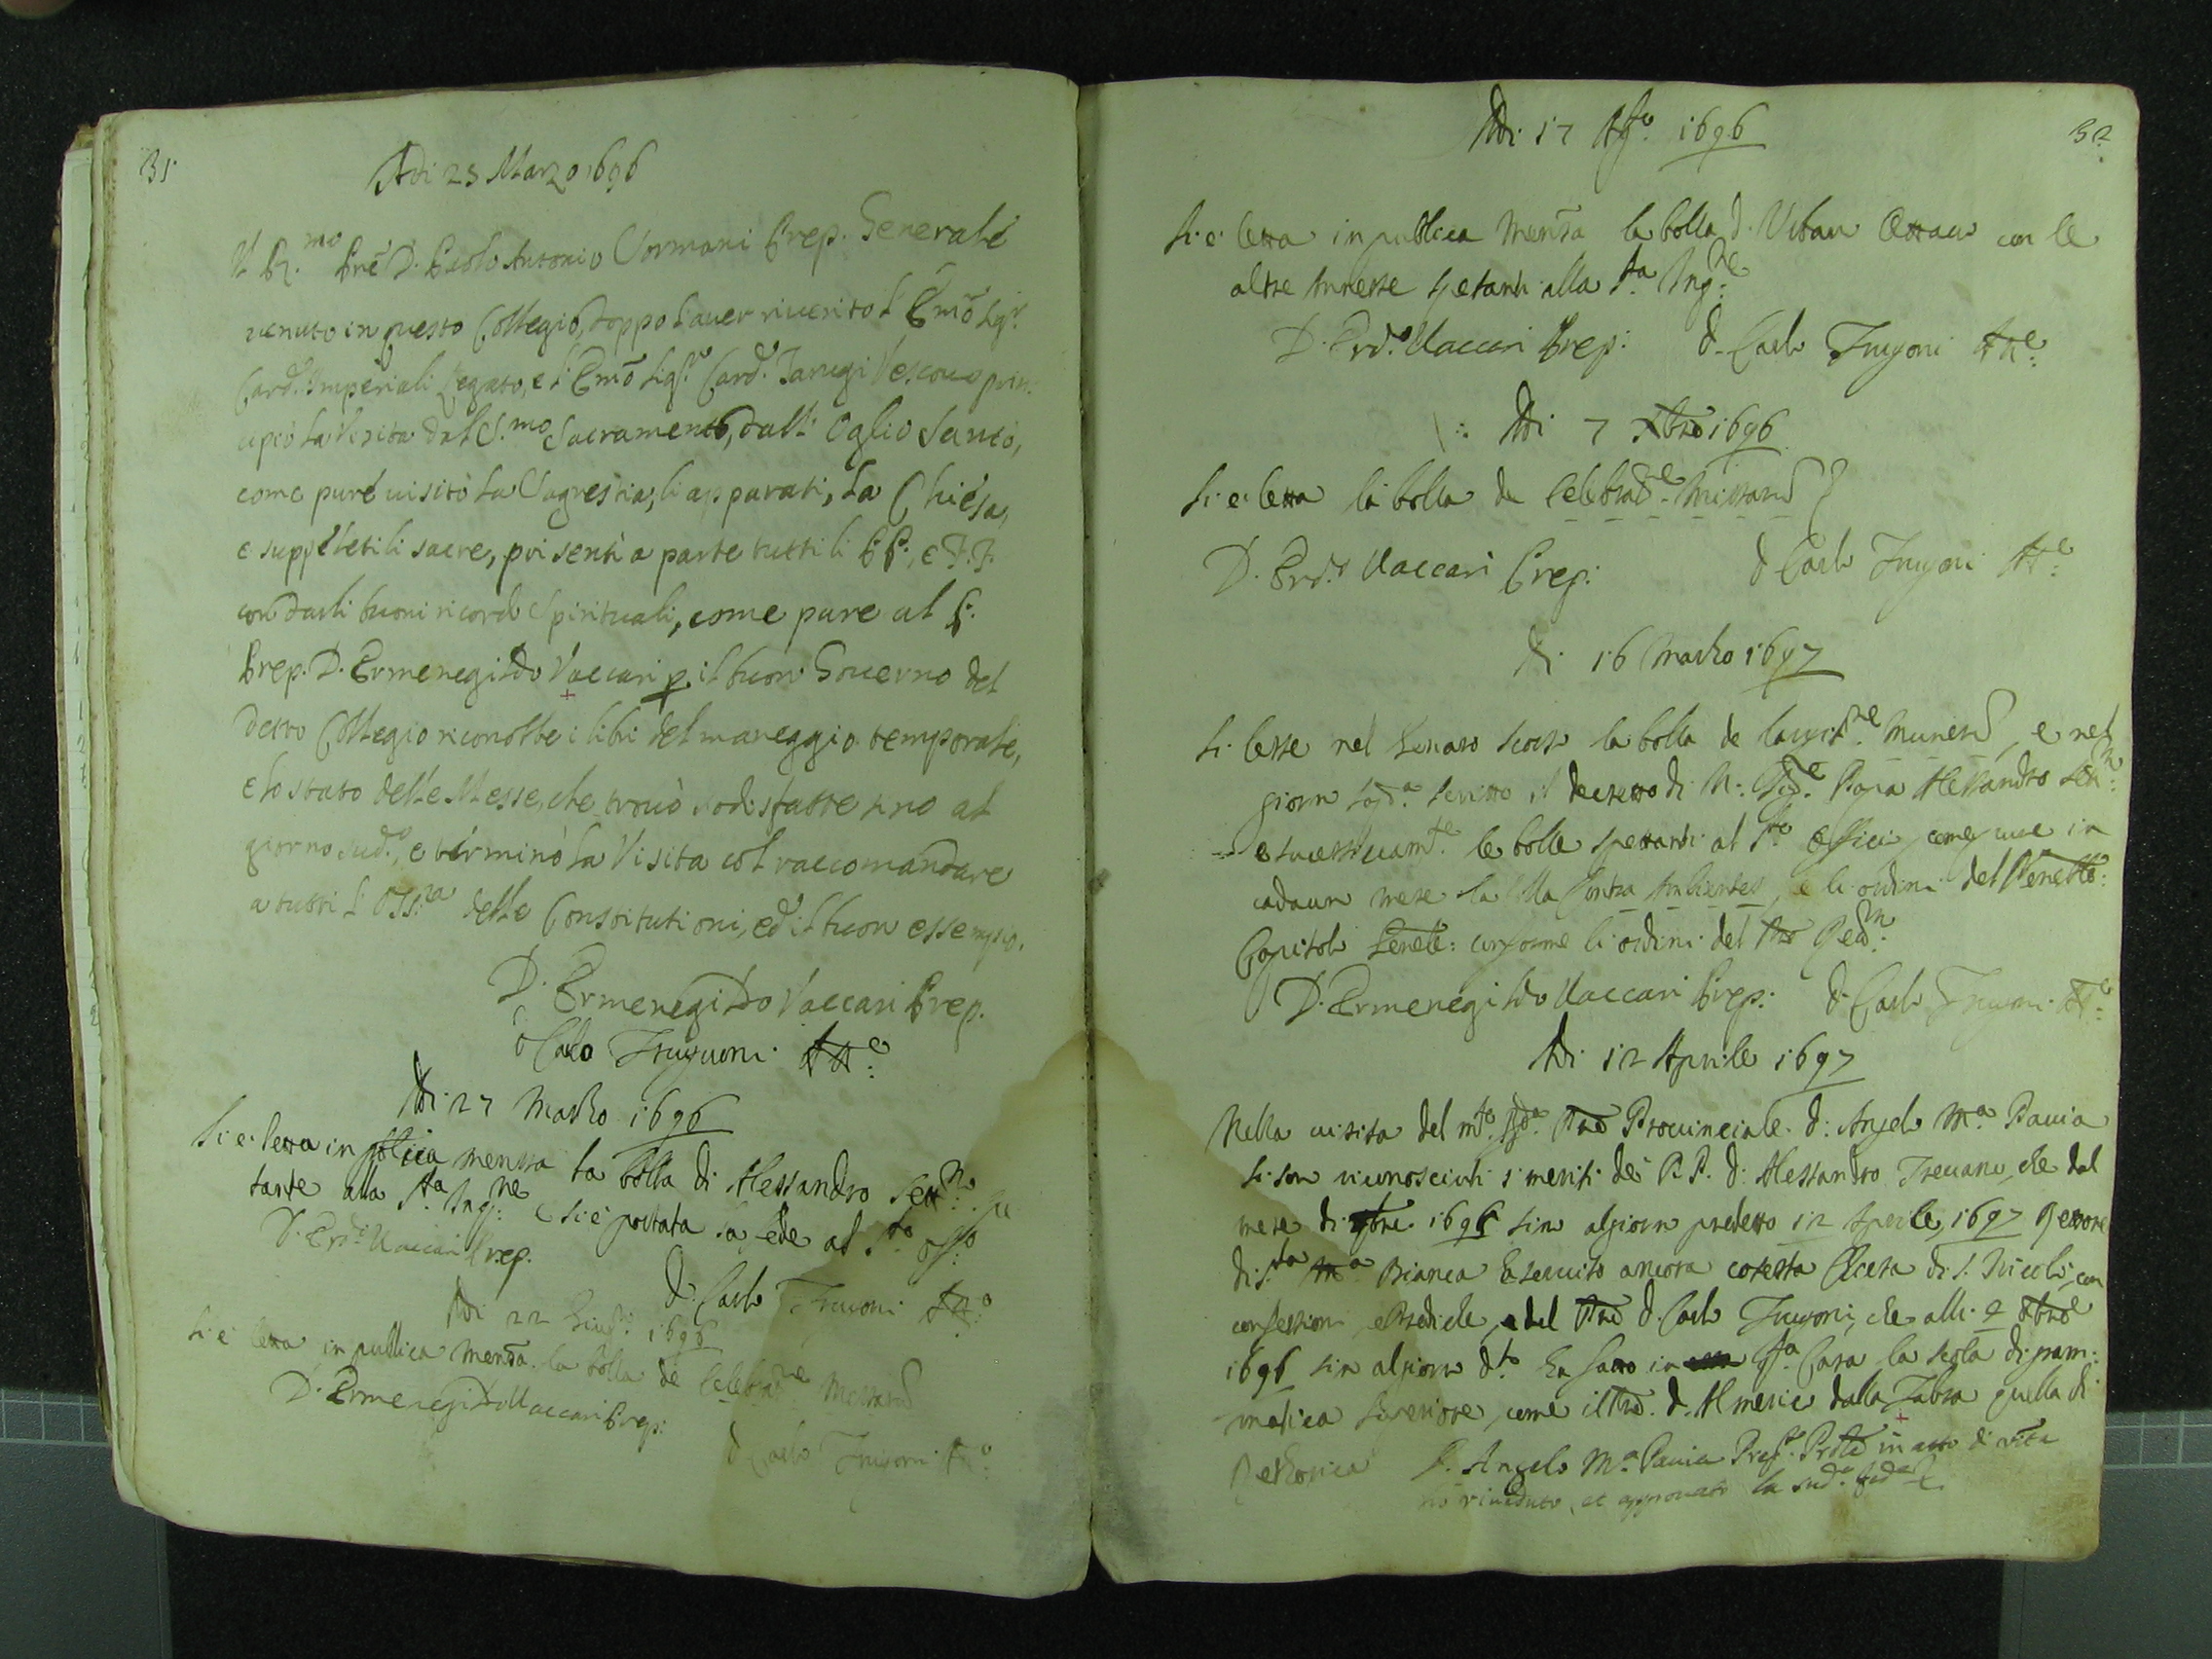 31
Adi 23 Marzo 1696
Il R.mo Pre D. Paolo Antonio Sormani Prep. Generale
venuto in questo Collegio, doppo l'aver riverito l'Emo Sigr.
Card.e Imperiali Legato, e l'Emo Sigr. Card. Tarugi Vescovo prin-
cipiò la Visita dal S.mo Sacramento, dall' Oglio Santo,
come pure visitò la Sagrestia, li apparati, la Chiesa,
e suppelletili sacre, poi sentì a parte tutti li PP. e F.F.
con darli buoni ricordi Spirituali, come pure al P.
Prep. D. Ermenegildo Vaccari p il buon Governo del
detto Collegio riconobbe i libri del maneggio temporale,
e lo stato delle Messe, che trovò sodisfatte sino al
giorno sud.o, e terminò la Visita col raccomandare
a tutti l'Oss.za delle Constitutioni, ed il buon essempio.
D. Ermenegildo Vaccari Prep.
D Carlo Frugoni Att.o
Adi 27 Marzo 1696
Si è letta in pblica mensa la bolla di Alessandro Sett.mo
tante alla S.ta Inq.ne e si è portata la fede al S.to Off.o
D. Erd.o Vaccari Prep.
D. Carlo Frugoni Att.o
Adi 22 1696
Si è letta in publica mensa la bolla de Celebrat.ne Missarum
D. Ermenegildo Vaccari Prep.
d Carlo Frugoni Att.o
32
Adi 17 Ag.to 1696
Si è letta in publica mensa la bolla d. Urban Ottavo con le
altre annesse spetanti alla S.ta Inq.ne
D. Erd.o Vaccari Prep: d. Carlo Frugoni Att.e
Adi 7 Xbre 1696
Si è letta la bolla de Celebrat.e Missarum
D. Erd.o Vaccari Prep: d Carlo Frugoni Att.e
Adi 16 Marzo 1697
Si lesse nel Genaro scorso la bolla de largit.ne Munerum, e nel
giorno sogd.o il decretto di Papa Alessandro Sett.mo
e sucessivam.te le bolle spettanti al S.to Officio, come pure in
cadaun mese la bolla Contra Ambientes, e li ordini del Veneble:
Capitolo Genele: conforme li ordini del
D. Ermenegildo Vaccari Prep: d. Carlo Frugoni Att.e
Adi 12 Aprile 1697
Nella visita del m.to Rd.o Pre Provinciale d: Angelo M.a Pavia
si son riconosciuti i meriti dei P. P. d: Alessandro Trevano, che dal
mese di 1696 sin al giorno predetto 12 Aprile 1697 Rettore
di S.ta M.a Bianca ha servito ancora cotesta Chiesa di S. Nicolò, con
confessioni, e Prediche, e del Pre d. Carlo Frugoni, che alli 2 Xbre
1696 sin al giorno d.to ha fatto in q.ta Casa la scola di gram-
matica superiore, come il Pre. d. Almerico dalla Zabra quella di
Rethorica D. Angelo M.a Pavia Prep.o Prôle in atto di vita
ho riveduto, et approvato la sud.a fede